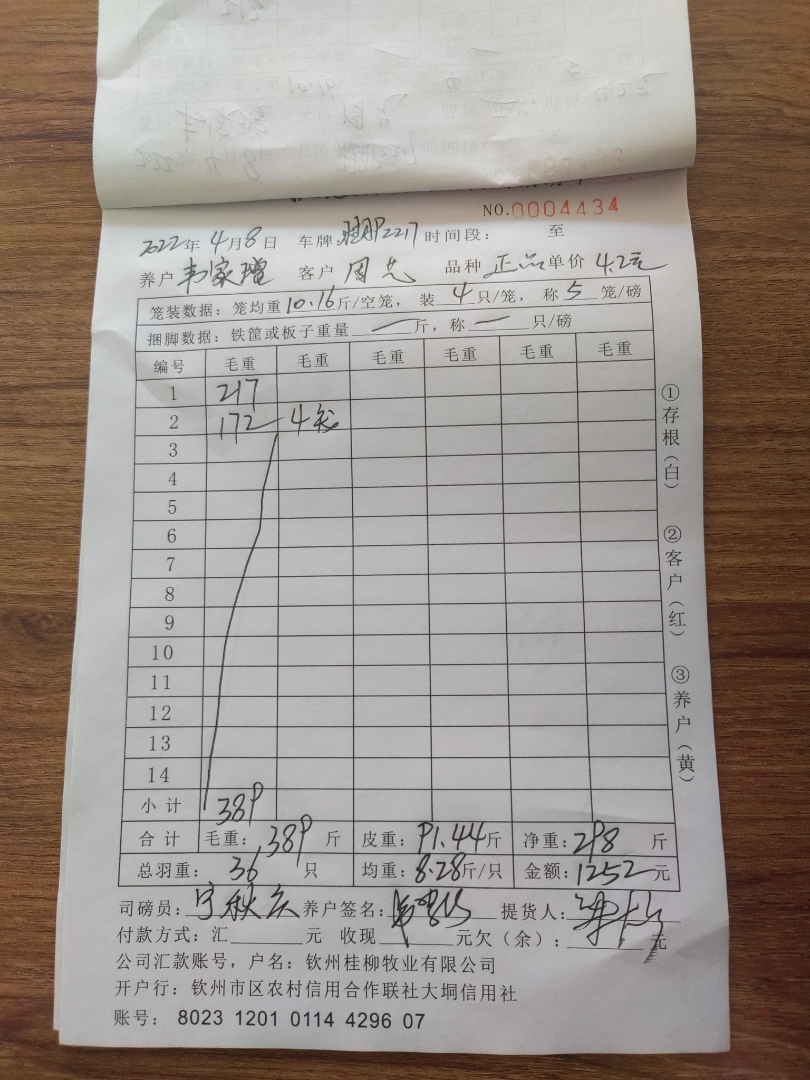 NO.0004434
2022年 4月8日 车牌: 2217 时间段: 至
养户 韦家增 客户 周光 品种 正品 单价 4.2元
笼装数据: 笼均重10.16斤/空笼, 装 4 只/笼, 称 5 笼/磅
捆脚数据: 铁筐或板子重量 — 斤, 称 — 只/磅
编号 毛重 毛重 毛重 毛重 毛重 毛重
1 217
2 172 4笼
3
4
5
6
7
8
9
10
11
12
13
14
小计 389
合计 毛重: 389 斤 皮重: 91.44斤 净重: 298 斤
总羽重: 36 只 均重: 8.28斤/只 金额: 1252元
司磅员: 宁秋庆 养户签名: 提货人:
付款方式: 汇 元 收现 元欠(余): 元
公司汇款账号, 户名: 钦州桂柳牧业有限公司
开户行: 钦州市区农村信用合作联社大垌信用社
账号: 8023 1201 0114 4296 07
①存根(白) ②客户(红) ③养户(黄)